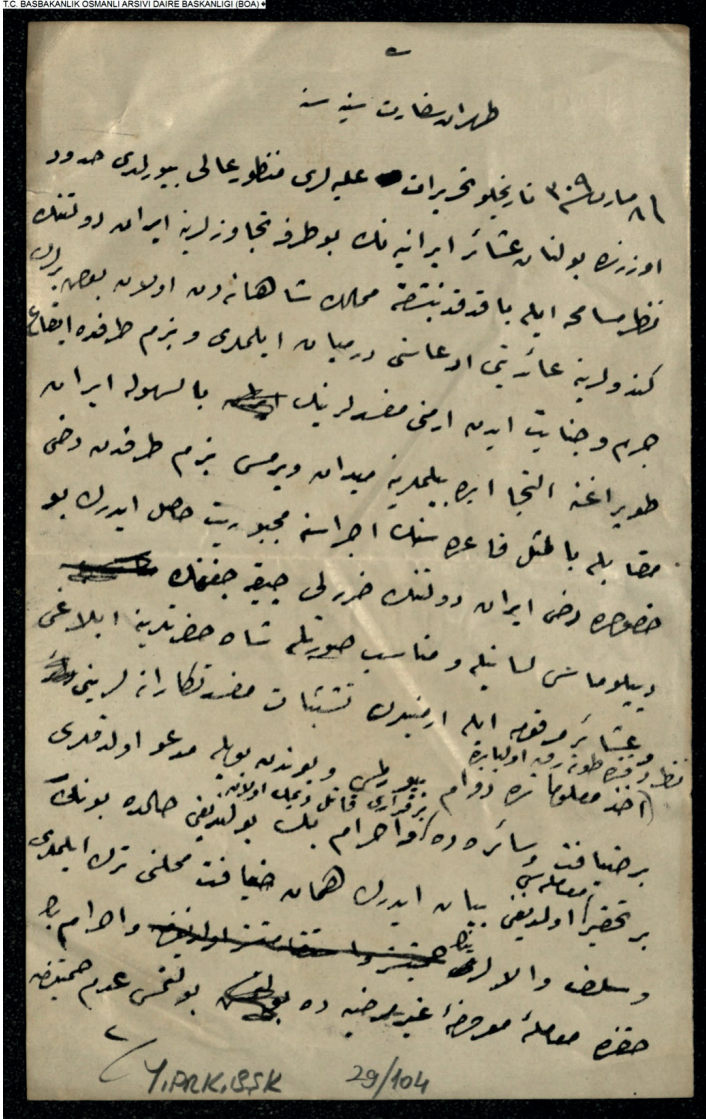 T.C. BASBAKANLIK OSMANLI ARSIVI DAIRE BASKANLIGI (BOA)
طهران سفارت سنیه سنه
مارت ٣٠٩ تاریخلو تحریرات علیه لری منظور عالی بیورلدی حدود
اوزرنده بولنان عشائر ایرانیه نك بو طرفه تجاوزلرینه ایران دولتنك
نظر مسامحه ایله باقدقدنبشقه ممالك شاهانه دن اولان بعض یرلرك
کندولرینه عائدیتی ادعاسنی درمیان ایلمدی و بزم طرفده ایقاع
جرم و جنایت ایدن ارمنی مفسدلرینك بالسهوله ایران
طوپراغنه التجا ایده بیلملرینه میدان ویرمسی بزم طرفدن دخی
مقابله بالمثل قاعده سنك اجراسنه مجبوریت حاصل ایدرك بو
خصوصده دخی ایران دولتنك ضررلی چیقه جغنك
دیپلوماسی لسانیله و مناسب صورتله شاه حضرتلرینه ابلاغی
و عشائر مرقومه ایله ارمنیلرك تشبثات مفسدتکارانه لرینی
نظر دقتده طوته رق اولبابده
اخذ معلوماته دوام بیورلمسی و بوندن بویله مدعو اولدقلری
بر ضیافت و سائره ده احرام بك بولندیغی حالده بونك
بر تحقیر معامله سی اولدیغنی بیان ایدرك همان ضیافت محلنی ترك ایلملری
و احرام بك
حقنده معامله بولنمسی عدم
Y.PRK.BŞK 29/104